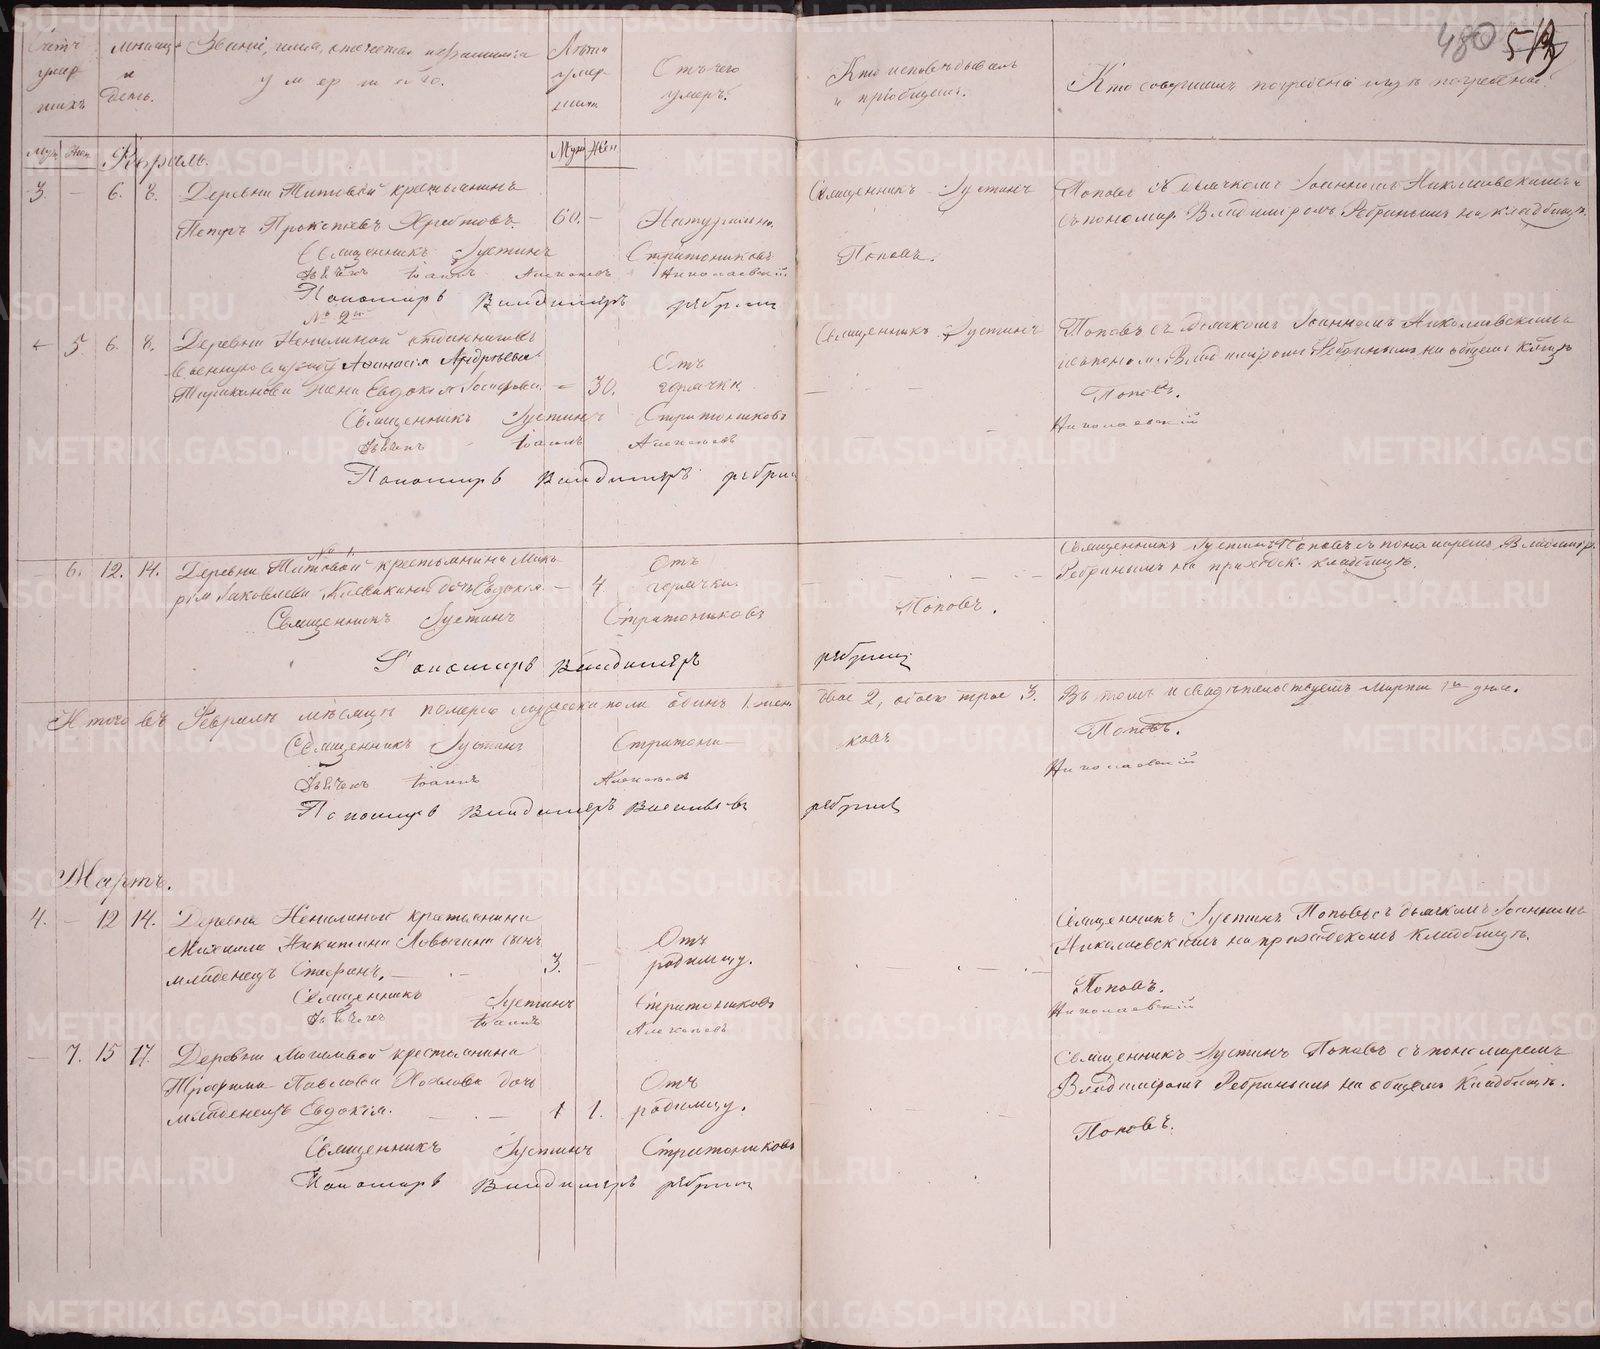 480 519
Счетъ умершихъ
Мѣсяцъ и день.
Званіе, имя, отчество и фамилія умершаго.
Лѣта умершихъ
Отъ чего умеръ.
Кто исповѣдывалъ и пріобщалъ.
Кто совершилъ погребеніе и гдѣ погребены.
Муж Жен
Февраль.
Муж Жен
3. – 6. 8. Деревни Титовой крестьянинъ
Петръ Прокопіевъ Хребтовъ. 60. – Натурально.
Священникъ Іустинъ
Поповъ съ дьячкомъ Іоанномъ Николаевскимъ и
съ пономар. Владиміромъ Ребринымъ на кладбищѣ.
Священникъ Іустинъ Стратониковъ Поповъ.
Дьячекъ Іоаннъ Алексѣевъ Николаевскій
Пономарь Владимеръ Ребрин
№ 2й
5 6. 8. Деревни
Аѳанасія Андреева
жена Евдокія – 30. Отъ горячки.
Священникъ Іустинъ
Поповъ съ дьячкомъ Іоанномъ Николаевскимъ
и съ пономар. Владиміромъ Ребринымъ на общемъ кладбищѣ
Священникъ Іустинъ Стратониковъ Поповъ.
Дьячекъ Іоаннъ Алексѣевъ Николаевскій
Пономарь Владимеръ Ребрин
– 6. 12. 14. Деревни Титовой крестьянина
Яковлева дочь Евдокія. – 4. Отъ горячки.
Священникъ Іустинъ Поповъ съ пономаремъ Владимір.
Ребринымъ на приходск. кладбищѣ.
Священникъ Іустинъ Стратониковъ Поповъ.
Пономарь Владимеръ Ребрин
Итого въ Февралѣ мѣсяцѣ померло мужеска пола одинъ 1, жен. двое 2, обоего трое 3. Въ томъ и свидѣтельствуемъ Марта 1го дня.
Священникъ Іустинъ Стратониковъ Поповъ.
Дьячекъ Іоаннъ Алексѣевъ Николаевскій
Пономарь Владимеръ Васильевъ Ребрин
Мартъ.
4. – 12 14. Деревни крестьянина
Михаила Никитина сынъ
младенецъ Стефанъ. 3. – Отъ родимцу.
Священникъ Іустинъ Поповъ съ дьячкомъ Іоанномъ
Николаевскимъ на приходскомъ кладбищѣ.
Священникъ Іустинъ Стратониковъ Поповъ.
Дьячекъ Іоаннъ Алексѣевъ Николаевскій
– 7. 15 17. Деревни крестьянина
Трофима Павлова дочь
младенецъ Евдокія. 1. Отъ родимцу.
Священникъ Іустинъ Поповъ съ пономаремъ
Владиміромъ Ребринымъ на общемъ кладбищѣ.
Священникъ Іустинъ Стратониковъ Поповъ.
Пономарь Владимеръ Ребрин
METRIKI.GASO-URAL.RU